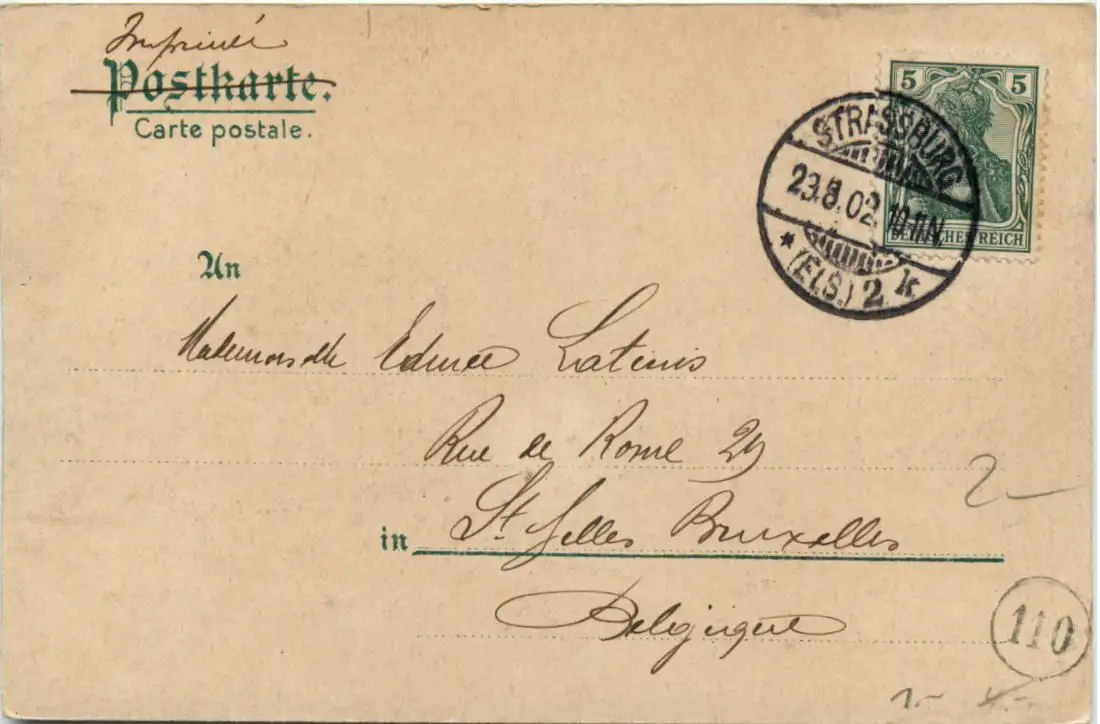 Imprimé
Postkarte.
Carte postale.
5 5
DEUTSCHES REICH
STRASSBURG
23.8.02. 10-11N.
* (ELS.) 2 k
An
Mademoiselle Edmée Latinis
Rue de Rome 29
in St Gilles Bruxelles
Belgique
2-
110